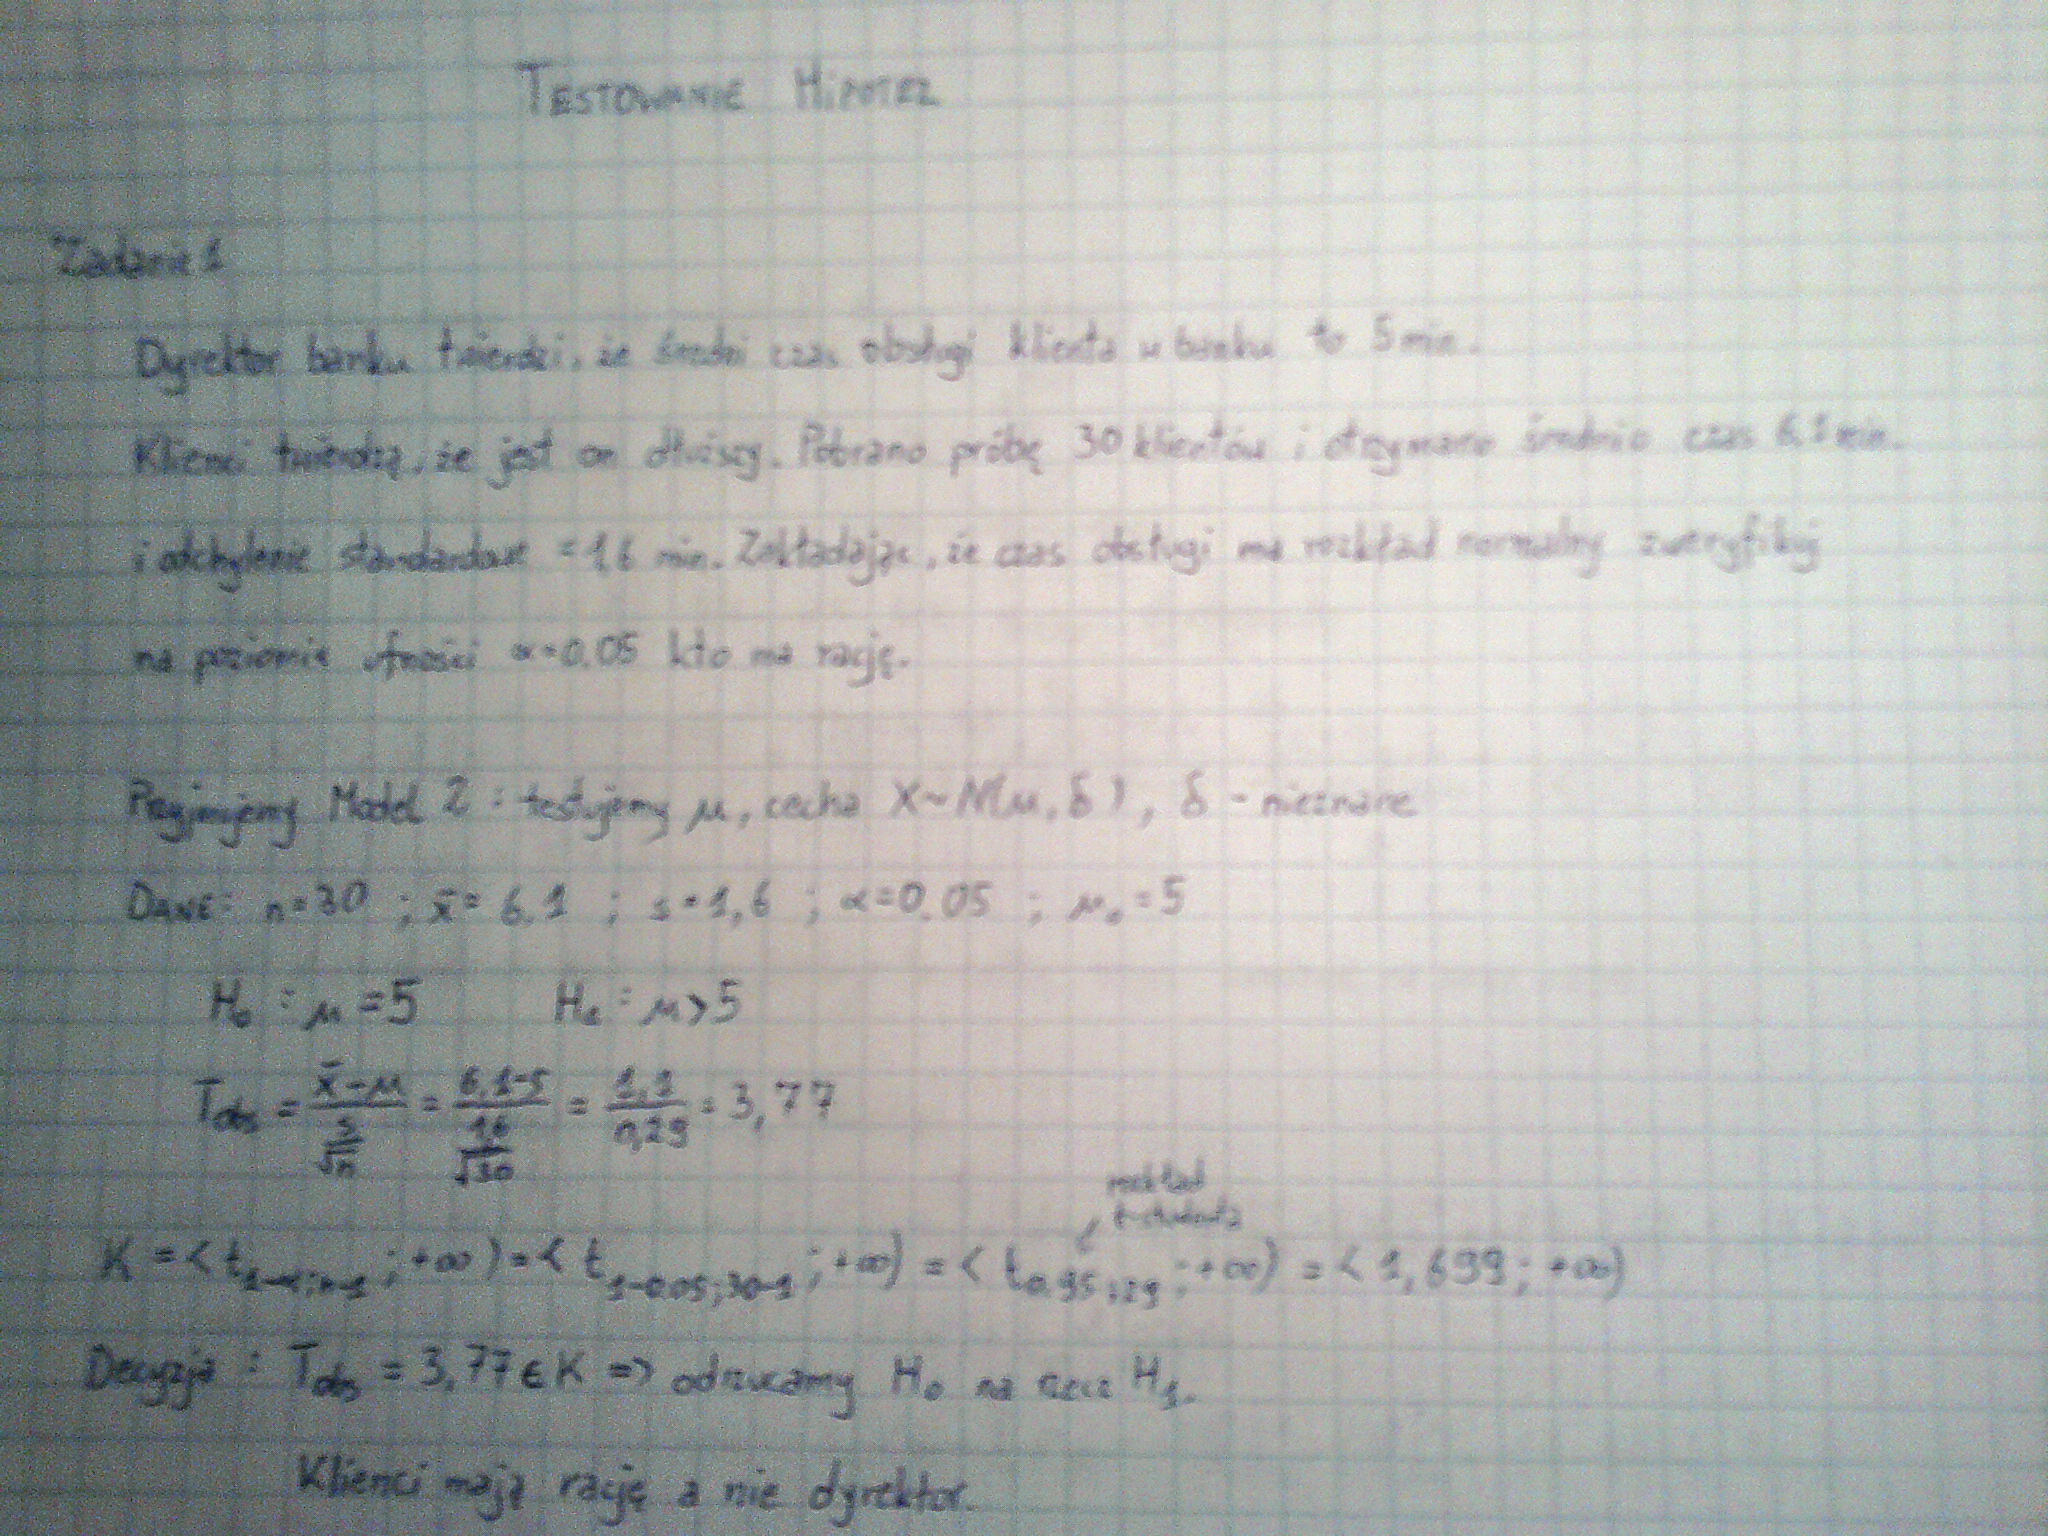 TESTOWANIE HIPOTEZ
Zadanie 1
Dyrektor banku twierdzi, że średni czas obsługi klienta w banku to 5 min.
Klienci twierdzą, że jest on dłuższy. Pobrano próbę 30 klientów i otrzymano średnio czas 6.1 min.
i odchylenie standardowe = 1,6 min. Zakładając, że czas obsługi ma rozkład normalny zweryfikuj
na poziomie ufności α=0.05 kto ma rację.
Przyjmujemy Model 2 : testujemy μ, cecha X~N(μ, δ), δ - nieznane
DANE: n=30 ; x̄= 6.1 ; s=1,6 ; α=0.05 ; μ₀=5
H₀ : μ=5 H₁ : μ>5
T_obs = (x̄-μ)/(s/√n) = (6,1-5)/(1,6/√30) = 1,1/0,29 = 3,77
rozkład
t-studenta
K = < t_{1-α;n-1} ; +∞ ) = < t_{1-0.05;30-1} ; +∞) = < t_{0.95;29} ; +∞) = < 1,699 ; +∞)
Decyzja : T_obs = 3,77 ∈ K => odrzucamy H₀ na rzecz H₁.
Klienci mają rację a nie dyrektor.